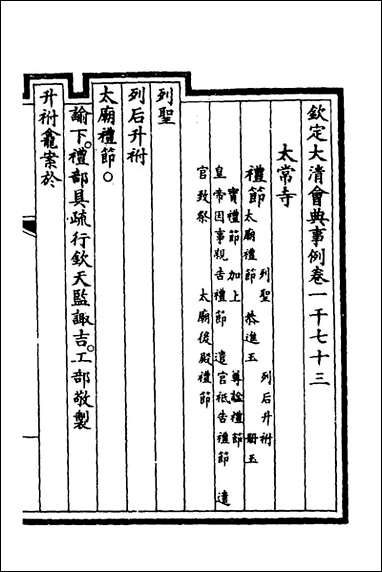 欽定大清會典事例卷一千七十三
太常寺
禮節
列聖 列后升祔
太廟禮節 恭進玉册玉
寶禮節 加上 尊諡禮節
皇帝因事親告禮節 遣官祗告禮節 遣
官致祭 太廟後殿禮節
列聖
列后升祔
太廟禮節。
諭下。禮部具疏行欽天監諏吉。工部敬製
升祔龕案於